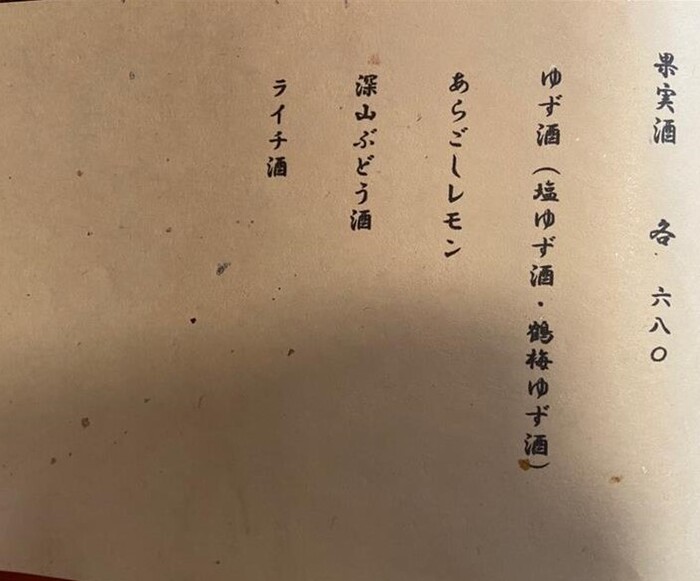 果実酒 各 六八〇
ゆず酒（塩ゆず酒・鶴梅ゆず酒）
あらごしレモン
深山ぶどう酒
ライチ酒